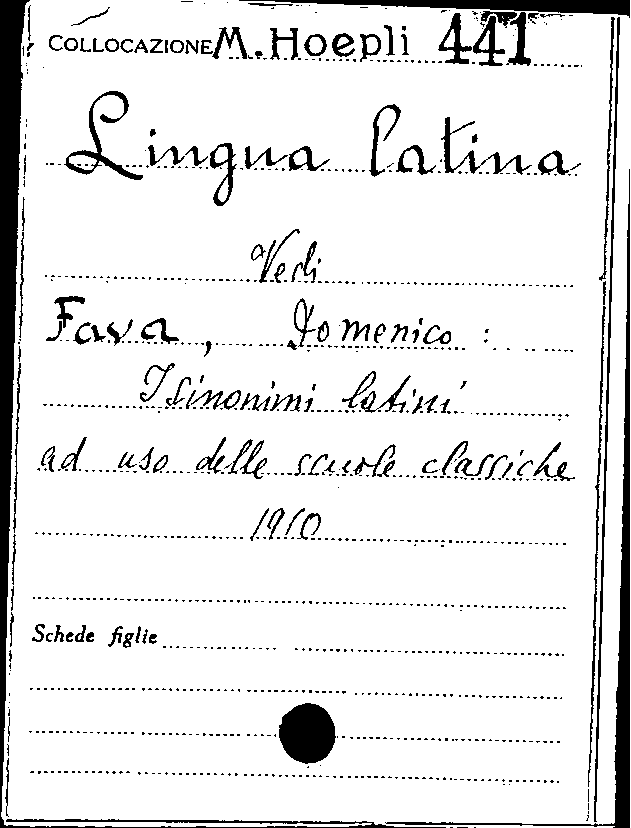 COLLOCAZIONE M. Hoepli 441
Lingua latina
Vedi
Fava, Domenico :
I sinonimi latini
ad uso delle scuole classiche
1910
Schede figlie